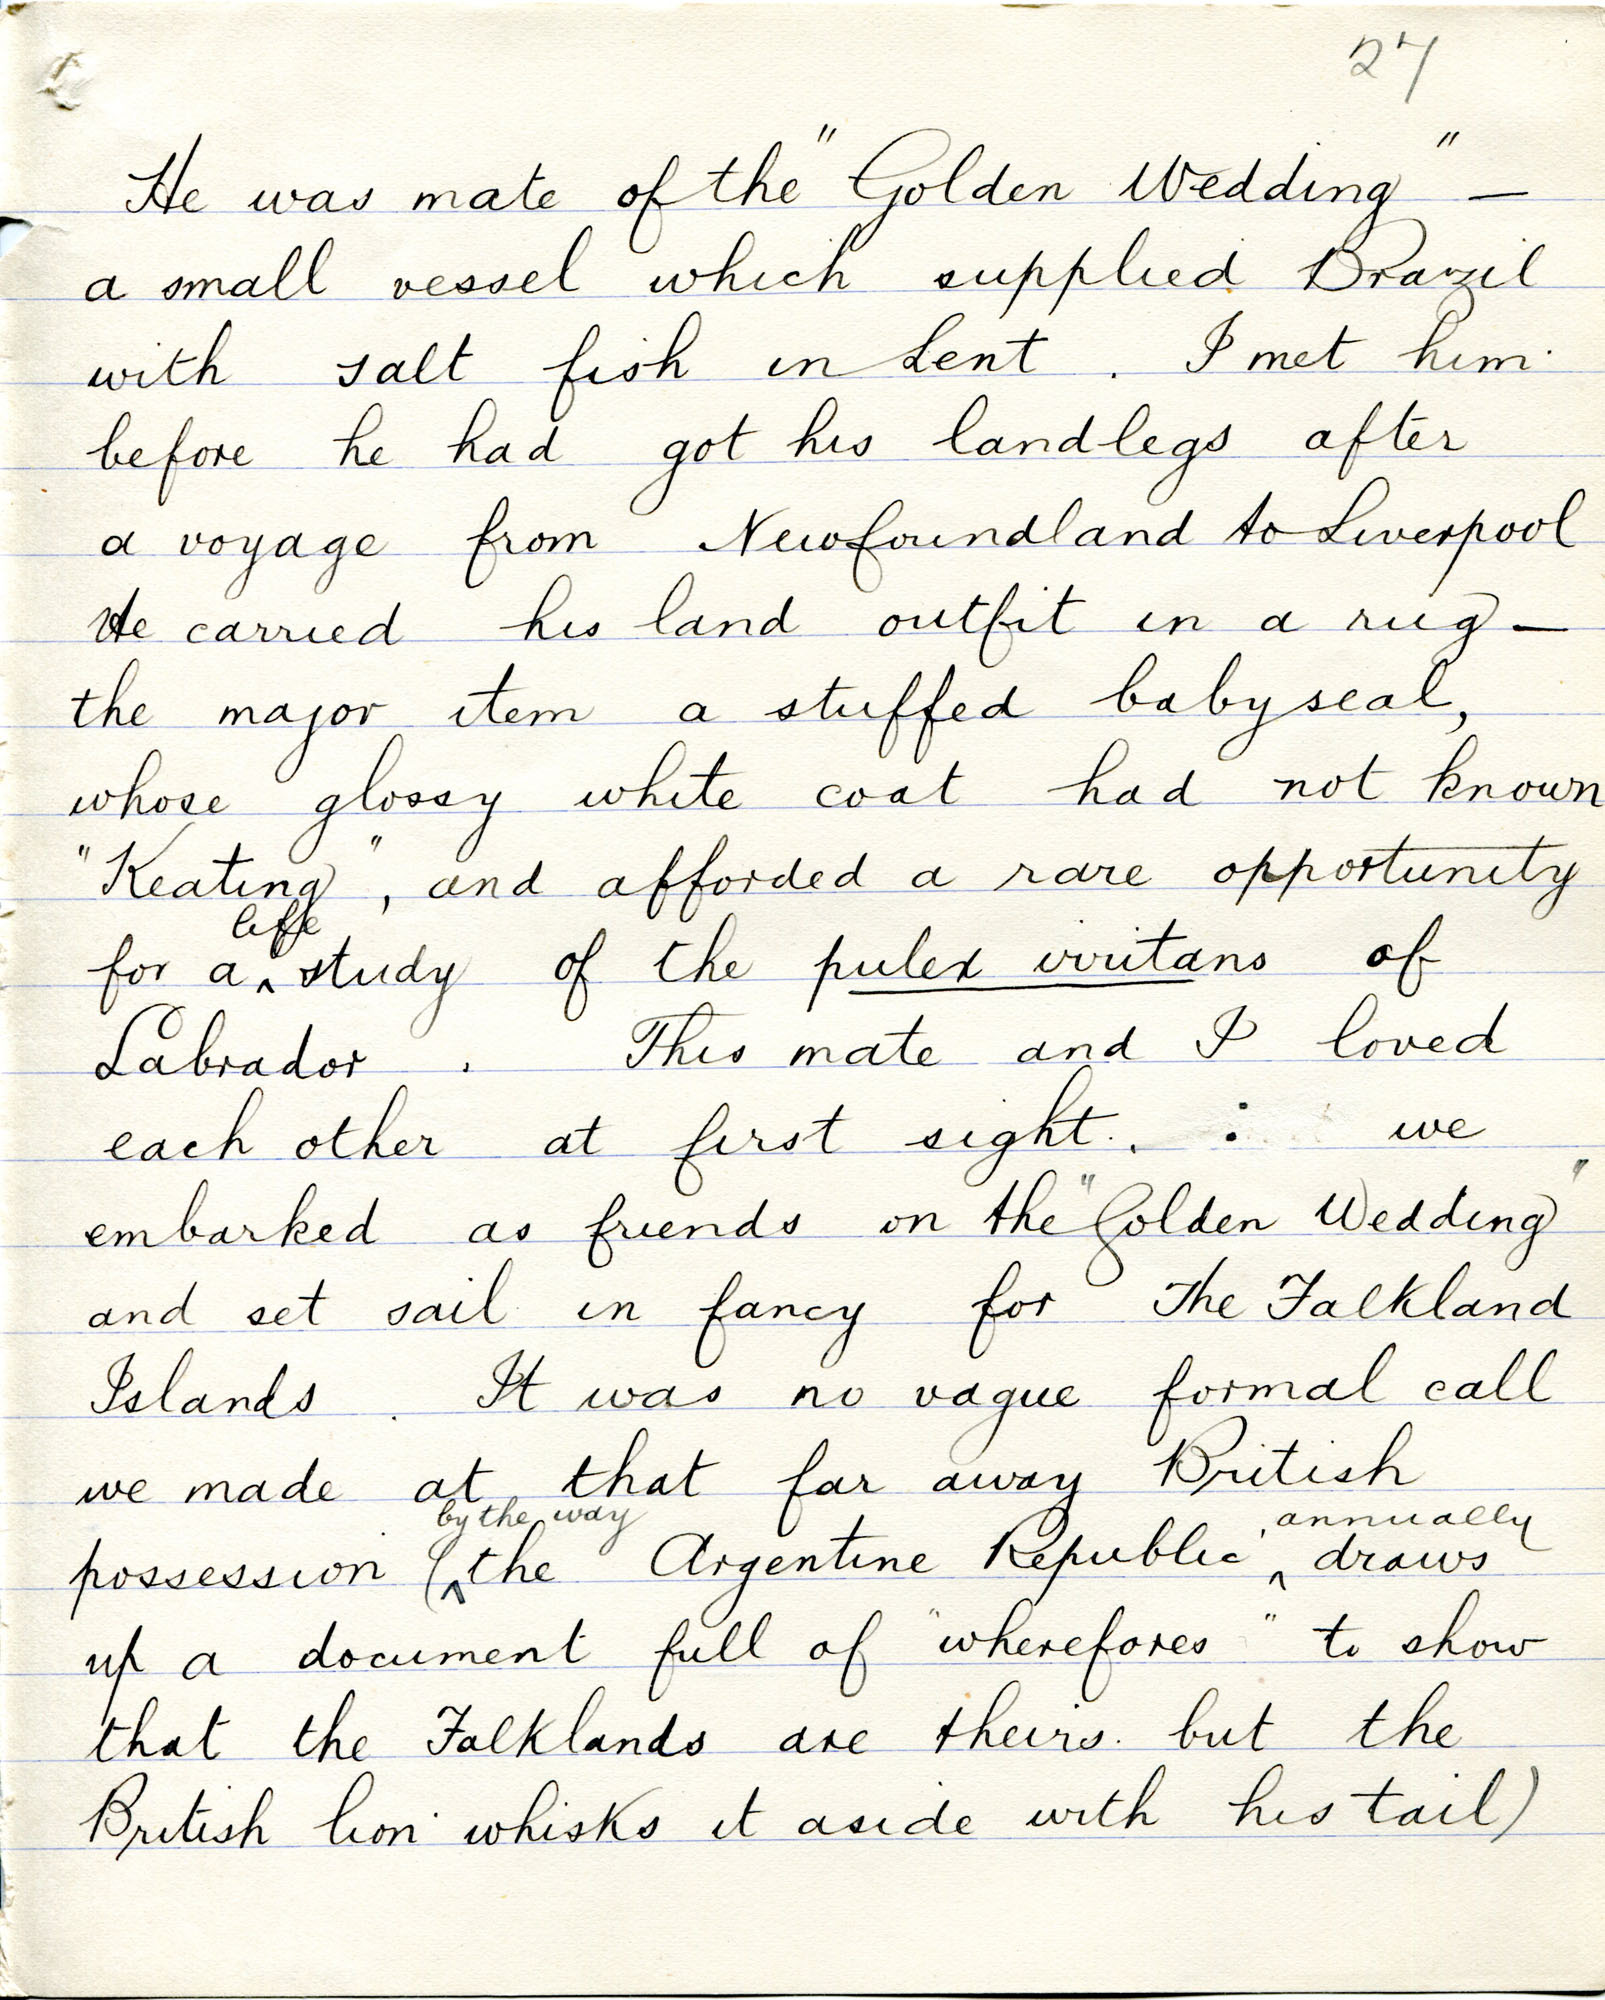 27
He was mate of the "Golden Wedding" —
a small vessel which supplied Brazil
with salt fish in Lent. I met him
before he had got his landlegs after
a voyage from Newfoundland to Liverpool
He carried his land outfit in a rug —
the major item a stuffed baby seal,
whose glossy white coat had not known
"Keating", and afforded a rare opportunity
life
for a ‸ study of the pulex irritans of
Labrador. This mate and I loved
each other at first sight. : we
embarked as friends on the "Golden Wedding"
and set sail in fancy for The Falkland
Islands. It was no vague formal call
we made at that far away British
by the way annually
possession (‸ the Argentine Republic ‸ draws
up a document full of "wherefores" to show
that the Falklands are theirs. but the
British lion whisks it aside with his tail)